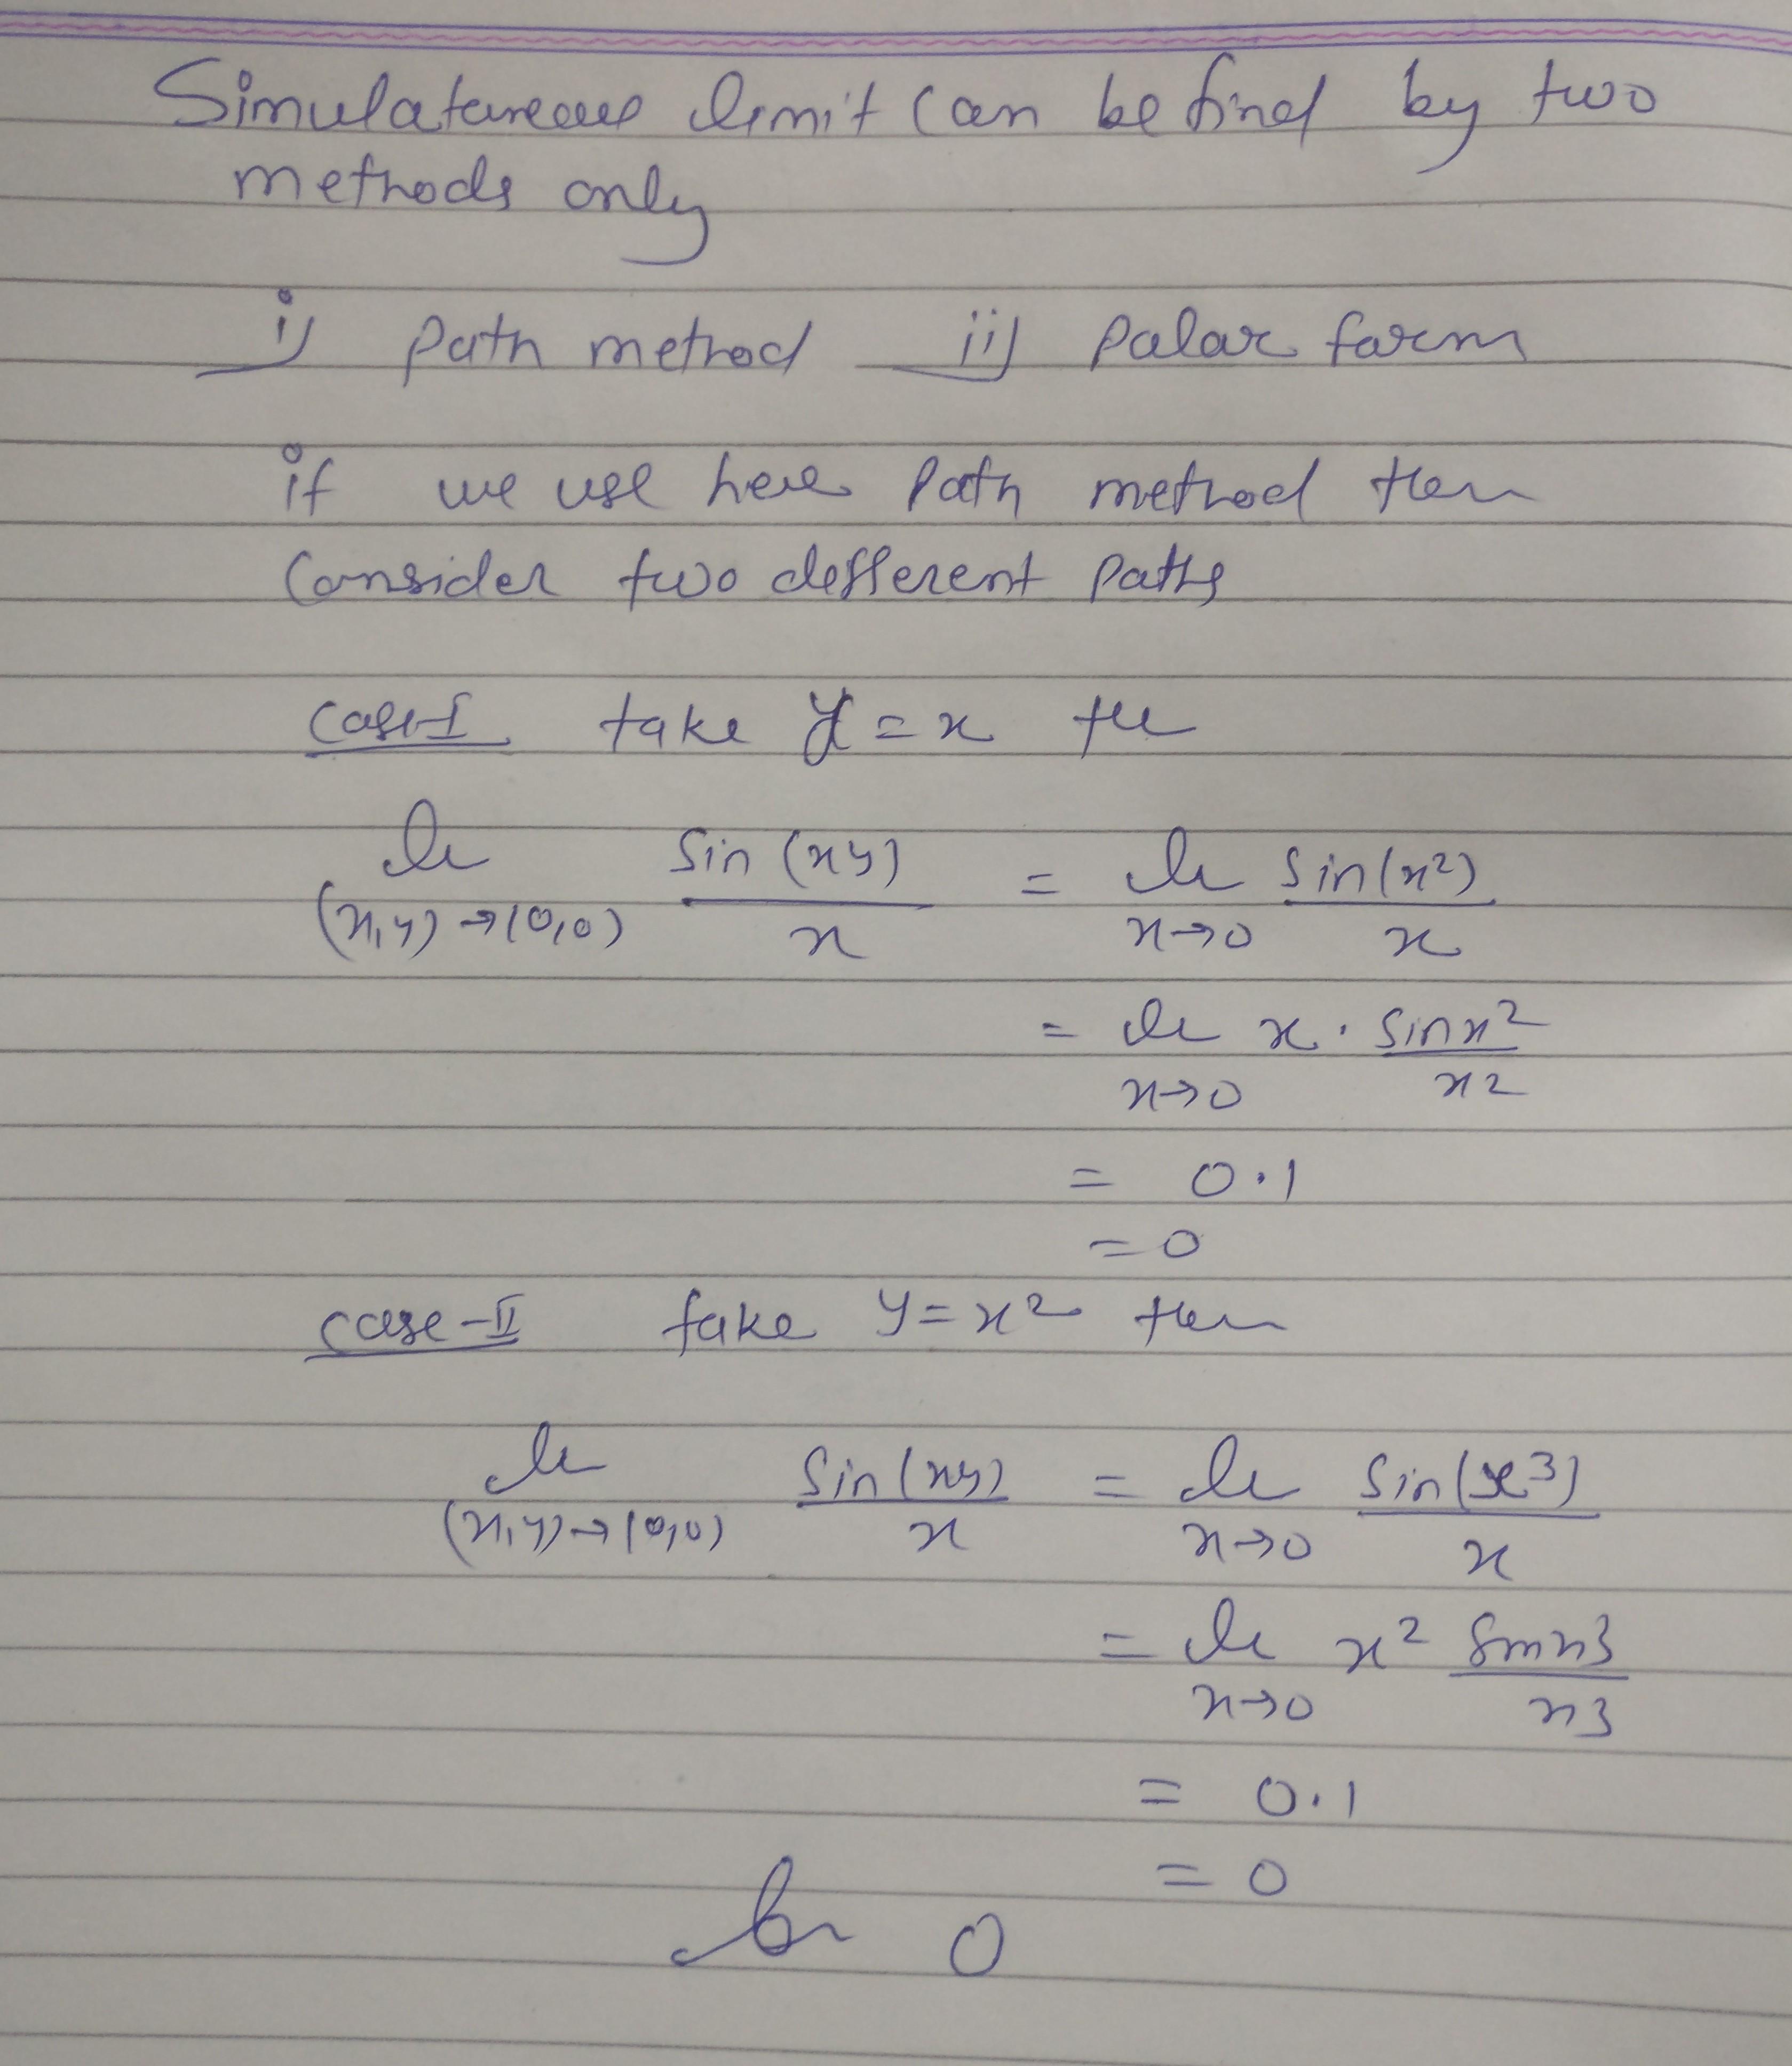 Simulataneous limit can be find by two
methods only
i) Path method ii) Palar form
if we use here Path method then
Consider two different paths
case-I take y = x the
li sin (xy) = li sin(x²)
(x,y) → (0,0) x x→0 x
= li x · sinx²
x→0 x2
= 0.1
= 0
case-II take y = x² then
li sin(xy) = li sin(x³)
(x,y) → (0,0) x x→0 x
= li x² sinx3
x→0 x3
= 0.1
= 0
0